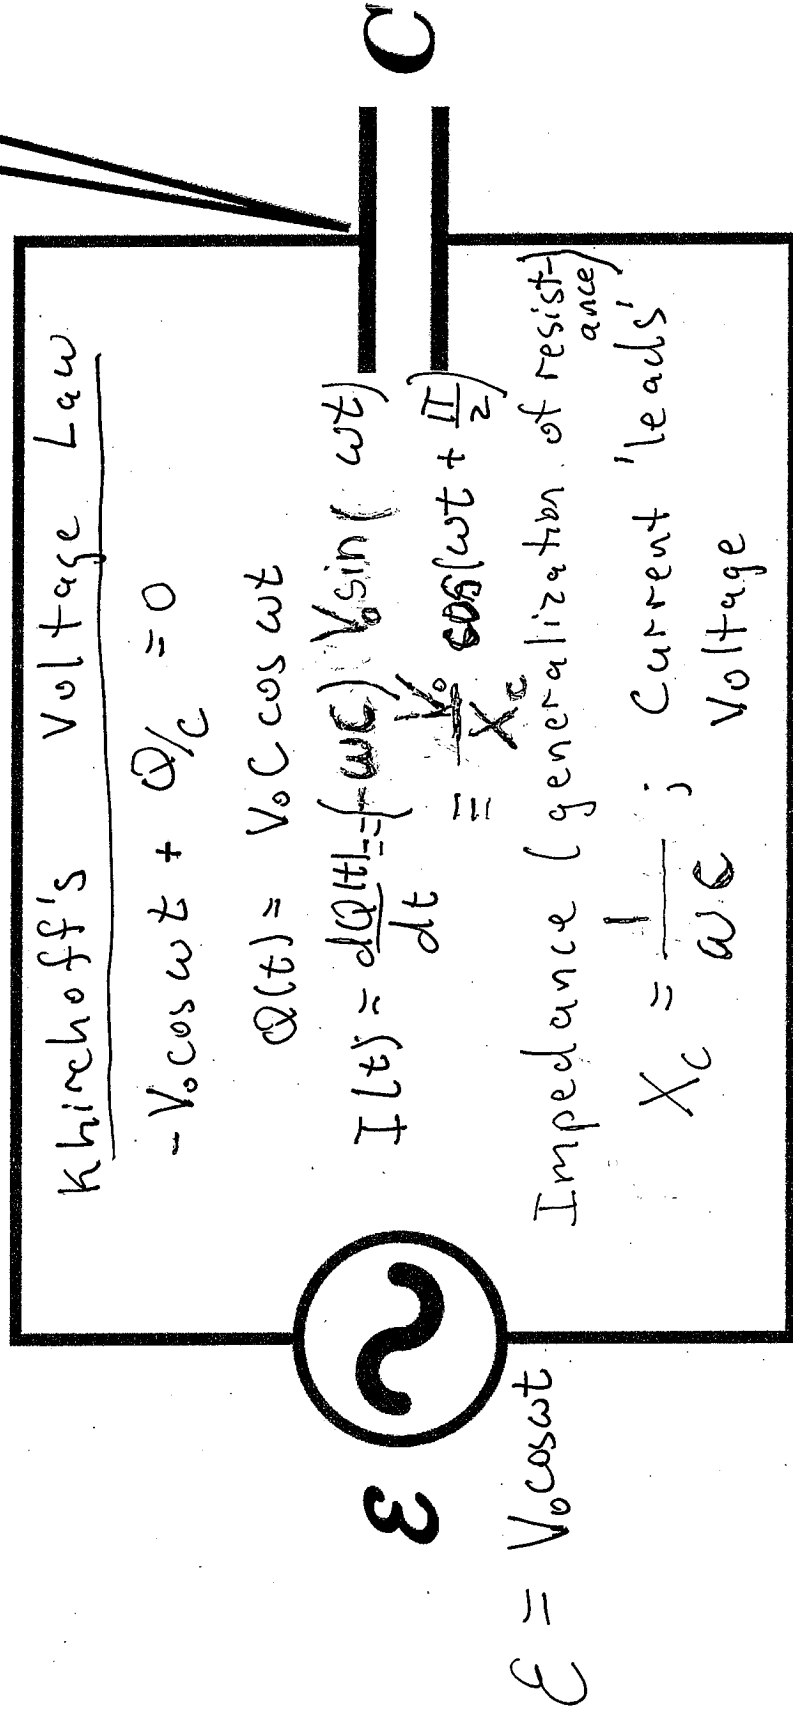 Khirchoff's Voltage Law
-V₀cos ωt + Q/C = 0
Q(t) = V₀ C cos ωt
I(t) = dQ(t)/dt = (-ωC) V₀ sin( ωt)
= V₀/X_C cos(ωt + π/2)
Impedance (generalization of resistance)
X_C = 1/ωC ; Current 'leads'
Voltage
C
ε
ℰ = V₀cosωt